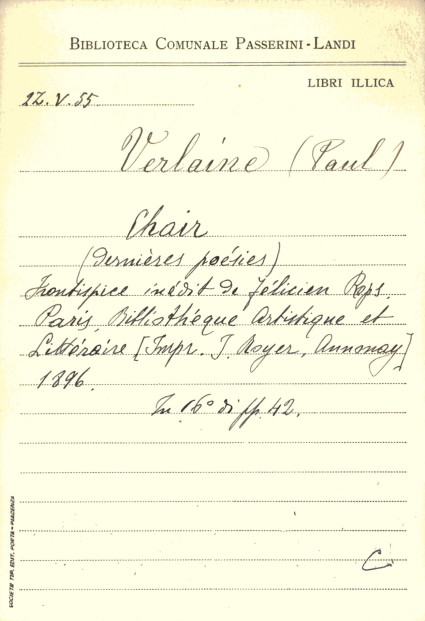 BIBLIOTECA COMUNALE PASSERINI-LANDI
LIBRI ILLICA
2Z.V.55
Verlaine (Paul)
Chair
(dernières poésies)
Frontispice inédit de Félicien Rops.
Paris, Bibliothéque Artistique et
Littéraire [Impr. J. Royer, Annonay]
1896.
In 16° di pp. 42.
C
SOCIETÀ TIP. EDIT. PORTA - PIACENZA